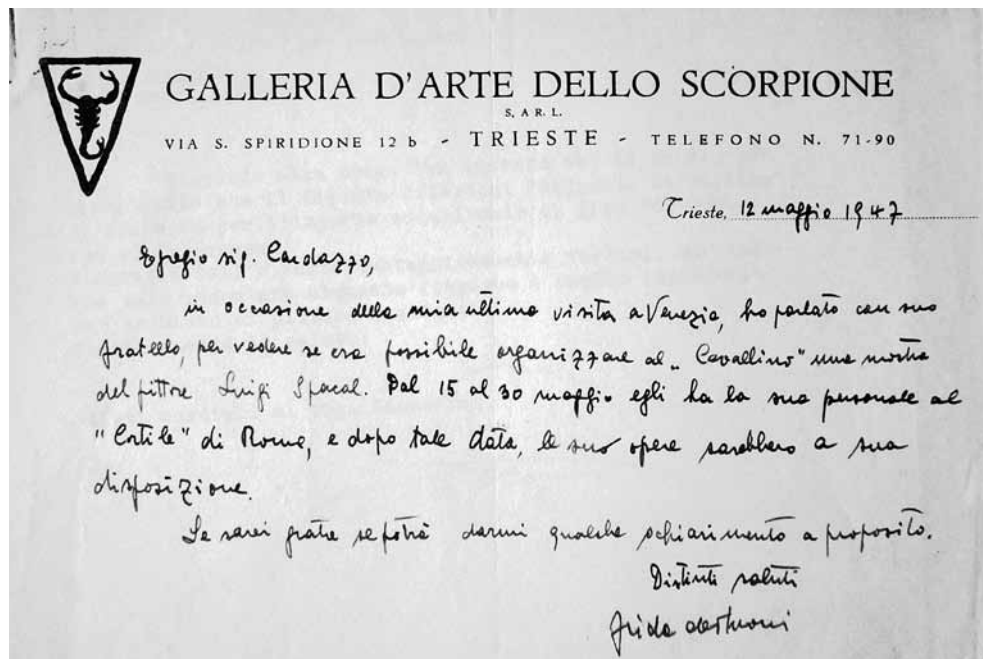 GALLERIA D'ARTE DELLO SCORPIONE
S. A R. L.
VIA S. SPIRIDIONE 12 b - TRIESTE - TELEFONO N. 71-90
Trieste, 12 maggio 1947
Egregio sig. Cardazzo,
in occasione della mia ultima visita a Venezia, ho parlato con suo
fratello, per vedere se era possibile organizzare al „Cavallino" una mostra
del pittore Luigi Spacal. Dal 15 al 30 maggio egli ha la sua personale al
"Cortile" di Roma, e dopo tale data, le sue opere sarebbero a sua
disposizione.
Le sarei grata se potrà darmi qualche schiarimento a proposito.
Distinti saluti
Frida